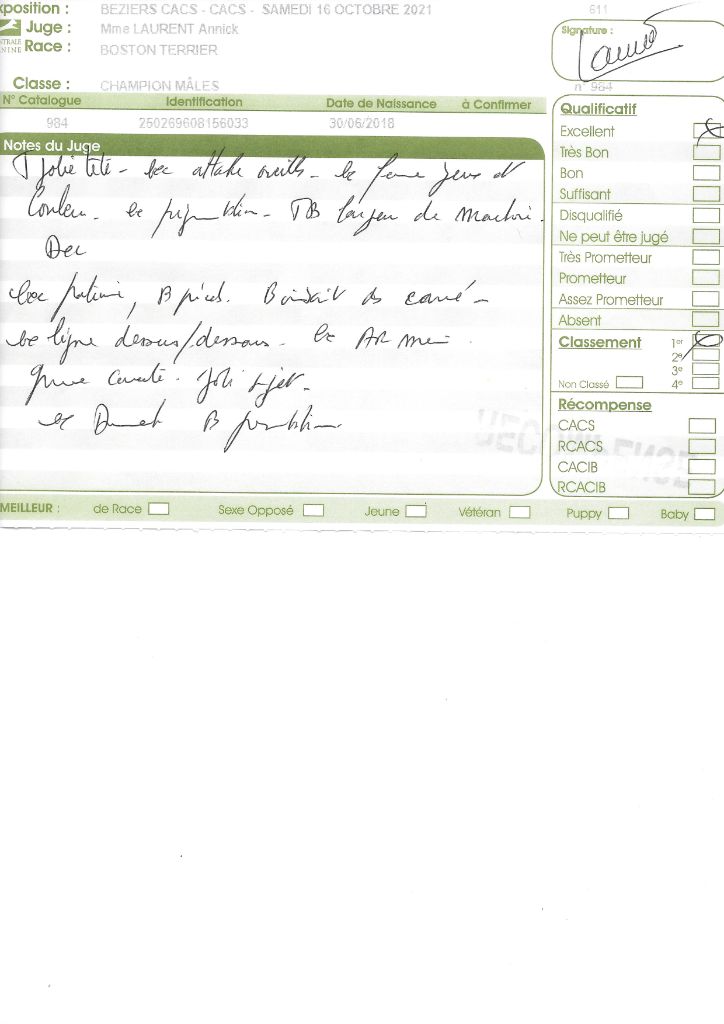 xposition : BEZIERS CACS - CACS - SAMEDI 16 OCTOBRE 2021 611
Juge : Mme LAURENT Annick
Race : BOSTON TERRIER
Signature :
Classe : CHAMPION MÂLES
n° 984
N° Catalogue Identification Date de Naissance à Confirmer
984 250269608156033 30/06/2018
Notes du Juge
T Jolie tête - exc attache oreilles - exc forme yeux et
Couleur - exc - TB largeur de machoire.
Dec
exc poitrine, B pieds. B inscrit ds carré -
exc ligne dessus/dessous - exc AR main
Joli sujet -
exc B
Qualificatif
Excellent
Très Bon
Bon
Suffisant
Disqualifié
Ne peut être jugé
Très Prometteur
Prometteur
Assez Prometteur
Absent
Classement 1er
2e
3e
Non Classé 4e
Récompense
CACS
RCACS
CACIB
RCACIB
MEILLEUR : de Race Sexe Opposé Jeune Vétéran Puppy Baby